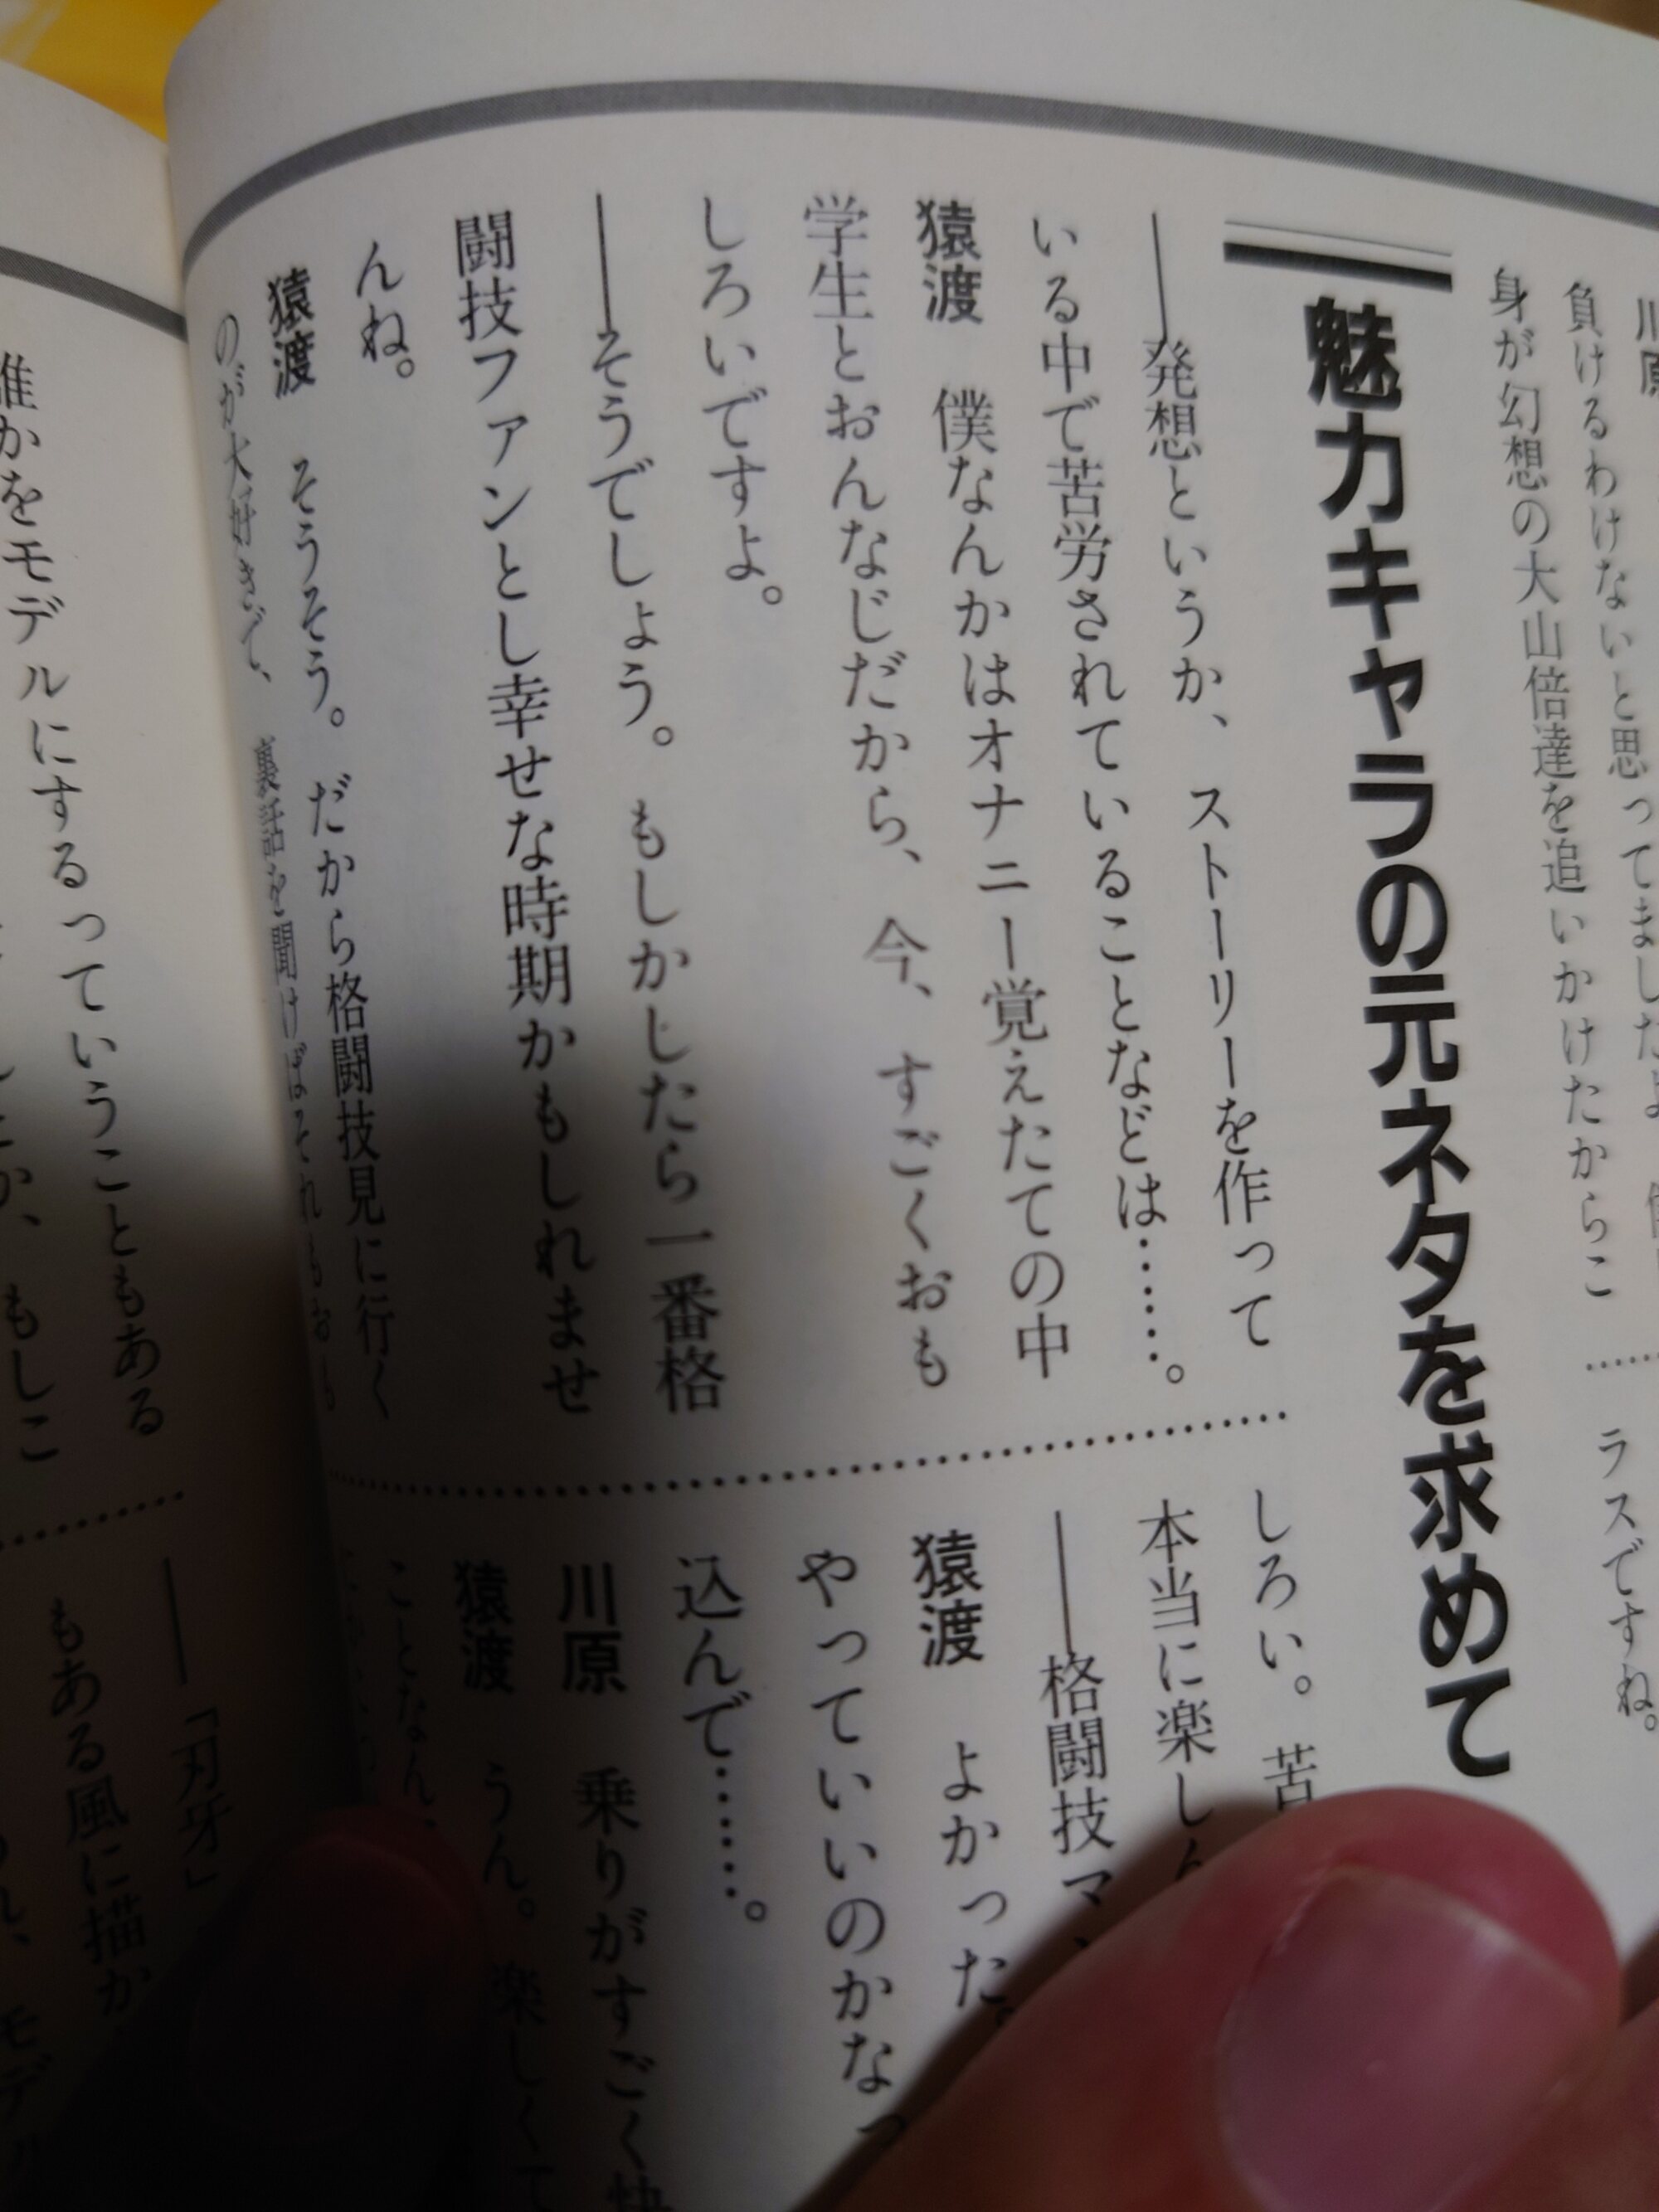 川原
負けるわけないと思ってましたよ
身が幻想の大山倍達を追いかけたからこ
ラスですね。
魅力キャラの元ネタを求めて
――発想というか、ストーリーを作って
いる中で苦労されていることなどは……。
猿渡　僕なんかはオナニー覚えたての中
学生とおんなじだから、今、すごくおも
しろいですよ。
――そうでしょう。もしかしたら一番格
闘技ファンとし幸せな時期かもしれませ
んね。
猿渡　そうそう。だから格闘技見に行く
のが大好きで、裏話を聞けばそれもおも
しろい。苦
本当に楽しん
――格闘技マン
猿渡　よかった。
やっていいのかなっ
込んで……。
川原　乗りがすごく快
猿渡　うん。楽しくて
ことなん
誰かをモデルにするっていうこともある
もしこ
――「刃牙」
もある風に描か
モデル